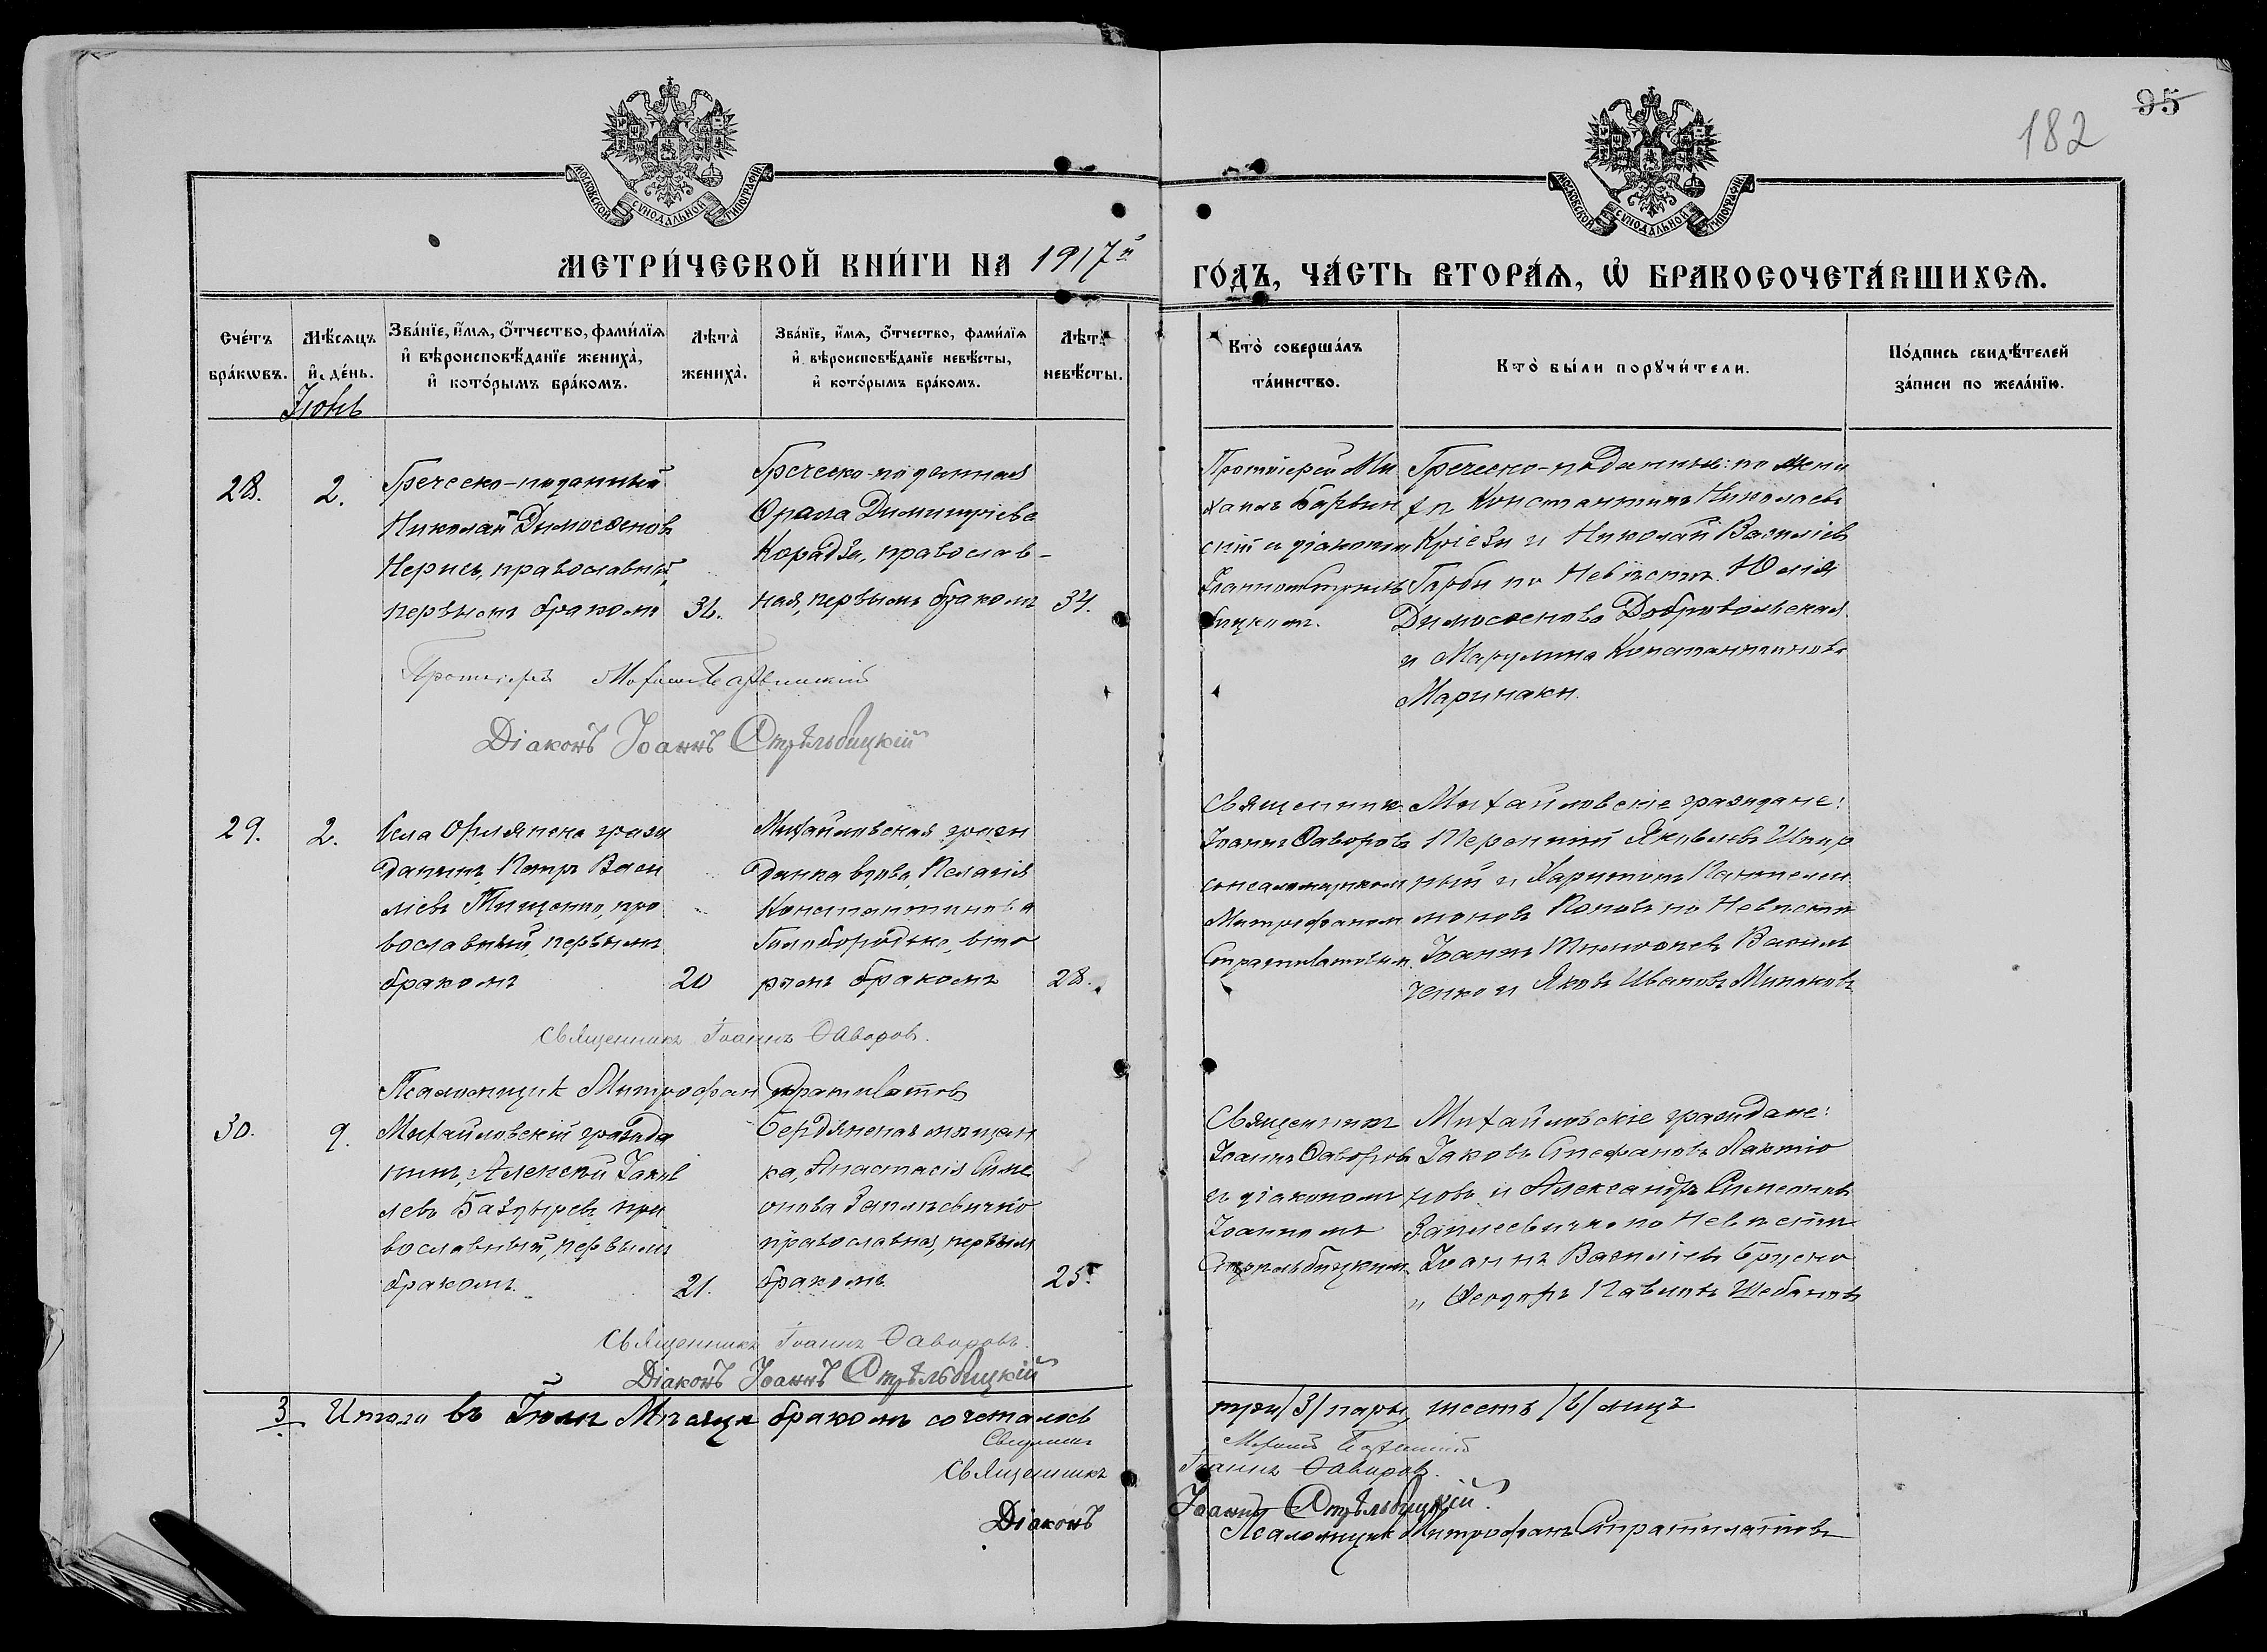 95
182
МОСКОВСКОЙ СѴНОДАЛЬНОЙ ТИПОГРАФІИ
МОСКОВСКОЙ СѴНОДАЛЬНОЙ ТИПОГРАФІИ
МЕТРИ́ЧЕСКОЙ КНИ́ГИ НА 1917й
ГО́ДЪ, ЧА́СТЬ ВТОРА́Ѧ, Ѡ҆ БРАКОСОЧЕТА́ВШИХСѦ.
Сче́тъ бра́кѡвъ.
Мѣ́сѧцъ и҆ де́нь.
Зва́нїе, и҆́мѧ, ѻ҆́тчество, фами́лїѧ
и҆ вѣроисповѣ́данїе жениха̀,
и҆ кото́рымъ бра́комъ.
Лѣта̀ жениха̀.
Зва́нїе, и҆́мѧ, ѻ҆́тчество, фами́лїѧ
и҆ вѣроисповѣ́данїе невѣ́сты,
и҆ кото́рымъ бра́комъ.
Лѣта̀ невѣ́сты.
Кто̀ соверша́лъ
та́инство.
Кто̀ бы́ли порꙋчи́тели.
По́дпись свидѣ́телей
за́писи по жела́нїю.
Іюнь
28.
2.
Греческо-поданный
Николай Димосѳеновъ
Нерись, православный,
первымъ бракомъ
36.
Греческо-поданная
Димитріева
православ-
ная, первымъ бракомъ
34.
Протоіерей Ми
хаилъ Барвин
скій и діакономъ
Іоанномъ Стрель
бицкимъ.
Греческо-поданные: по жени
хѣ Константинъ Николаевъ
Кріези и Николай Василіевъ
по Невѣстѣ Юлія
Димосѳенова Добровольская
и Константинова
Маринаки.
Протоіерей Михаилъ Барвинскій
Діаконъ Іоаннъ Стрѣльбицкій
29.
2.
Села Орлянска граж
данинъ, Петръ Васи
ліевъ Тищенко, пра
вославный, первымъ
бракомъ
20
Михайловская граж
данка вдова, Пелагія
Константинова
Голобородько, вто
рымъ бракомъ
28.
Священникъ
Іоаннъ Ѳаворовъ
съ псаломщикомъ
Митрофаномъ
Стратилатовымъ.
Михайловскіе граждане:
Терентій Яковлевъ
и Харитонъ Пантелеи
моновъ Поповъ по Невѣстѣ
Іоаннъ Тимоѳеевъ Василь
ченко и Яковъ Ивановъ Минаковъ
Священникъ Іоаннъ Ѳаворов.
Псаломщикъ Митрофанъ Стратилатовъ
30.
9.
Михайловскій гражда
нинъ, Алексѣй Іаков
левъ Баздыревъ пра
вославный, первымъ
бракомъ.
21.
Бердянская мѣщан
ка, Анастасія Симе
онова Заплѣсвичко
православная, первымъ
бракомъ
25.
Священникъ
Іоаннъ Ѳаворовъ
съ діакономъ
Іоанномъ
Стрѣльбицкимъ.
Михайловскіе граждане:
Іаковъ Стефановъ Лактіо
новъ и Александръ Симеоновъ
Заплесвичко по Невѣстѣ
Іоаннъ Василіевъ
и Ѳеодоръ Павловъ Шебановъ
Священникъ Іоаннъ Ѳаворовъ.
Діаконъ Іоаннъ Стрѣльбицкій
3 Итого въ Іюнѣ Мѣсяцѣ бракомъ сочеталось
три /3/ пары, шесть /6/ лицъ
Священникъ Михаилъ Барвинскій
Священникъ Іоаннъ Ѳаворовъ.
Діаконъ Іоаннъ Стрѣльбицкій.
Псаломщикъ Митрофанъ Стратилатовъ